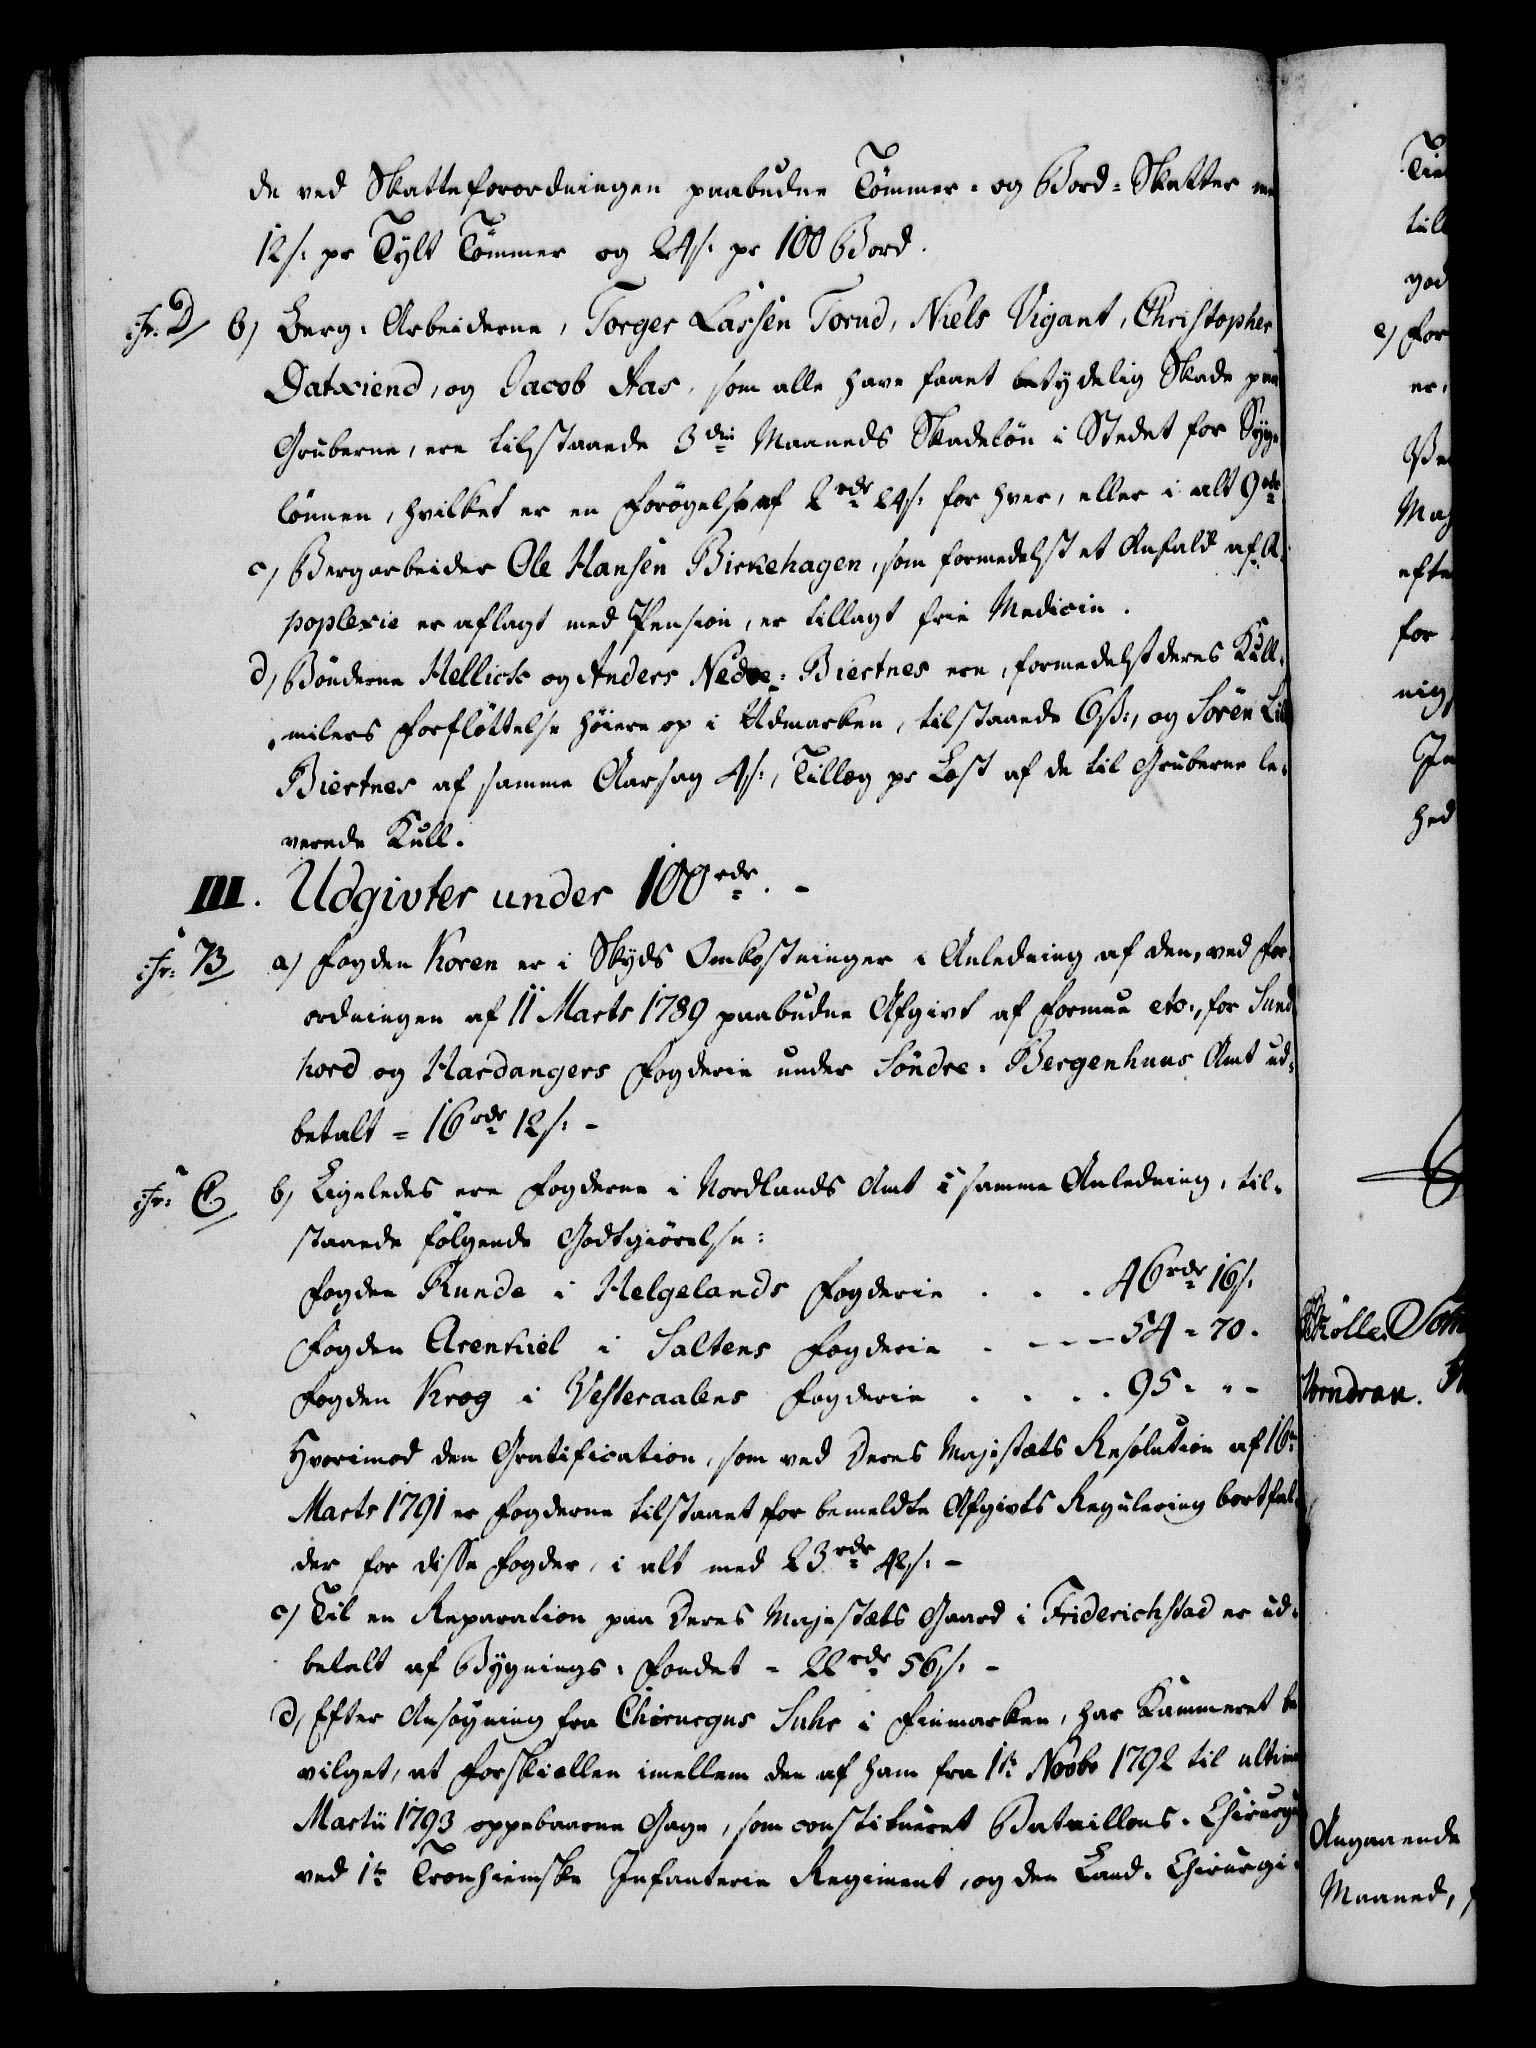 de ved Skatteforordningen paabudne Tömmer- og Bord-Skatter me
12 s: pr Tylt Tömmer og 24 s: pr 100 Bord.
:fr: D b) Berg-Arbeiderne, Torger Lassen Torud, Niels Vigant, Christopher
Datxiend, og Jacob Aas, som alle have faaet betydelig Skade paa
Gruberne, ere tilstaaede 3die Maaneds Skadelön i Stedet for Syge
lönnen, hvilket er en Forögelse af 2 rdr 24 s: for hver, eller i alt 9 rdr
c) Bergarbeider Ole Hansen Birkehagen, som formedelst et Anfald af A-
poplexie er aflagt med Pension, er tillagt frie Medicin.
d) Bönderne Hellick og Anders Nedre-Biertnes ere, formedelst deres Kull-
milers Forflöttelse höiere op i Udmarken, tilstaaede 6 s:, og Sören Lil
Biertnes af samme Aarsag 4 s:, Tillæg pr Læst af de til Gruberne le-
verede Kull.
III. Udgivter under 100 rdr. -
:fr: B a) Fogden Koren er i Skyds Omkostninger i Anledning af den, ved For-
ordningen af 11 Marts 1789 paabudne Afgivt af Formue etc., for Sund
hord og Hardangers Fogderie under Söndre-Bergenhuus Amt ud-
betalt = 16 rdr 12 s: -
:fr: C b) Ligeledes ere Fogderne i Nordlands Amt i samme Anledning, til-
staaede fölgende Godtgiörelse:
Fogden Runde i Helgelands Fogderie . . . 46 rdr 16 s.
Fogden Arentkiel i Saltens Fogderie . - - - 54 - 70.
Fogden Krog i Vesteraalens Fogderie . . . . 95 - " -
Hvorimod den Gratification, som ved Deres Majestæts Resolution af 16n
Marts 1791 er Fogderne tilstaaet for bemeldte Afgivts Regulering bortfal-
der for disse Fogder, i alt med 23 rdr 42 s: -
c) Til en Reparation paa Deres Majestæts Gaard i Friderichstad er ud-
betalt af Bygnings-Fondet = 22 rdr 56 s: -
d) Efter Ansögning fra Chirurgus Suhr i Finmarken, har Kammeret be
vilget, at Forskiællen imellem den af ham fra 1te Novbr 1792 til ultimo
Martii 1793 oppebaarne Gage, som constitueret Bataillons-Chirurgus
ved 1te Tronhiemske Infanterie Regiment, og den Land-Chirurgi-
till
god
e) For
er,
efte
for
nig
hed
Vorndran.
Angaaende
Maaned,